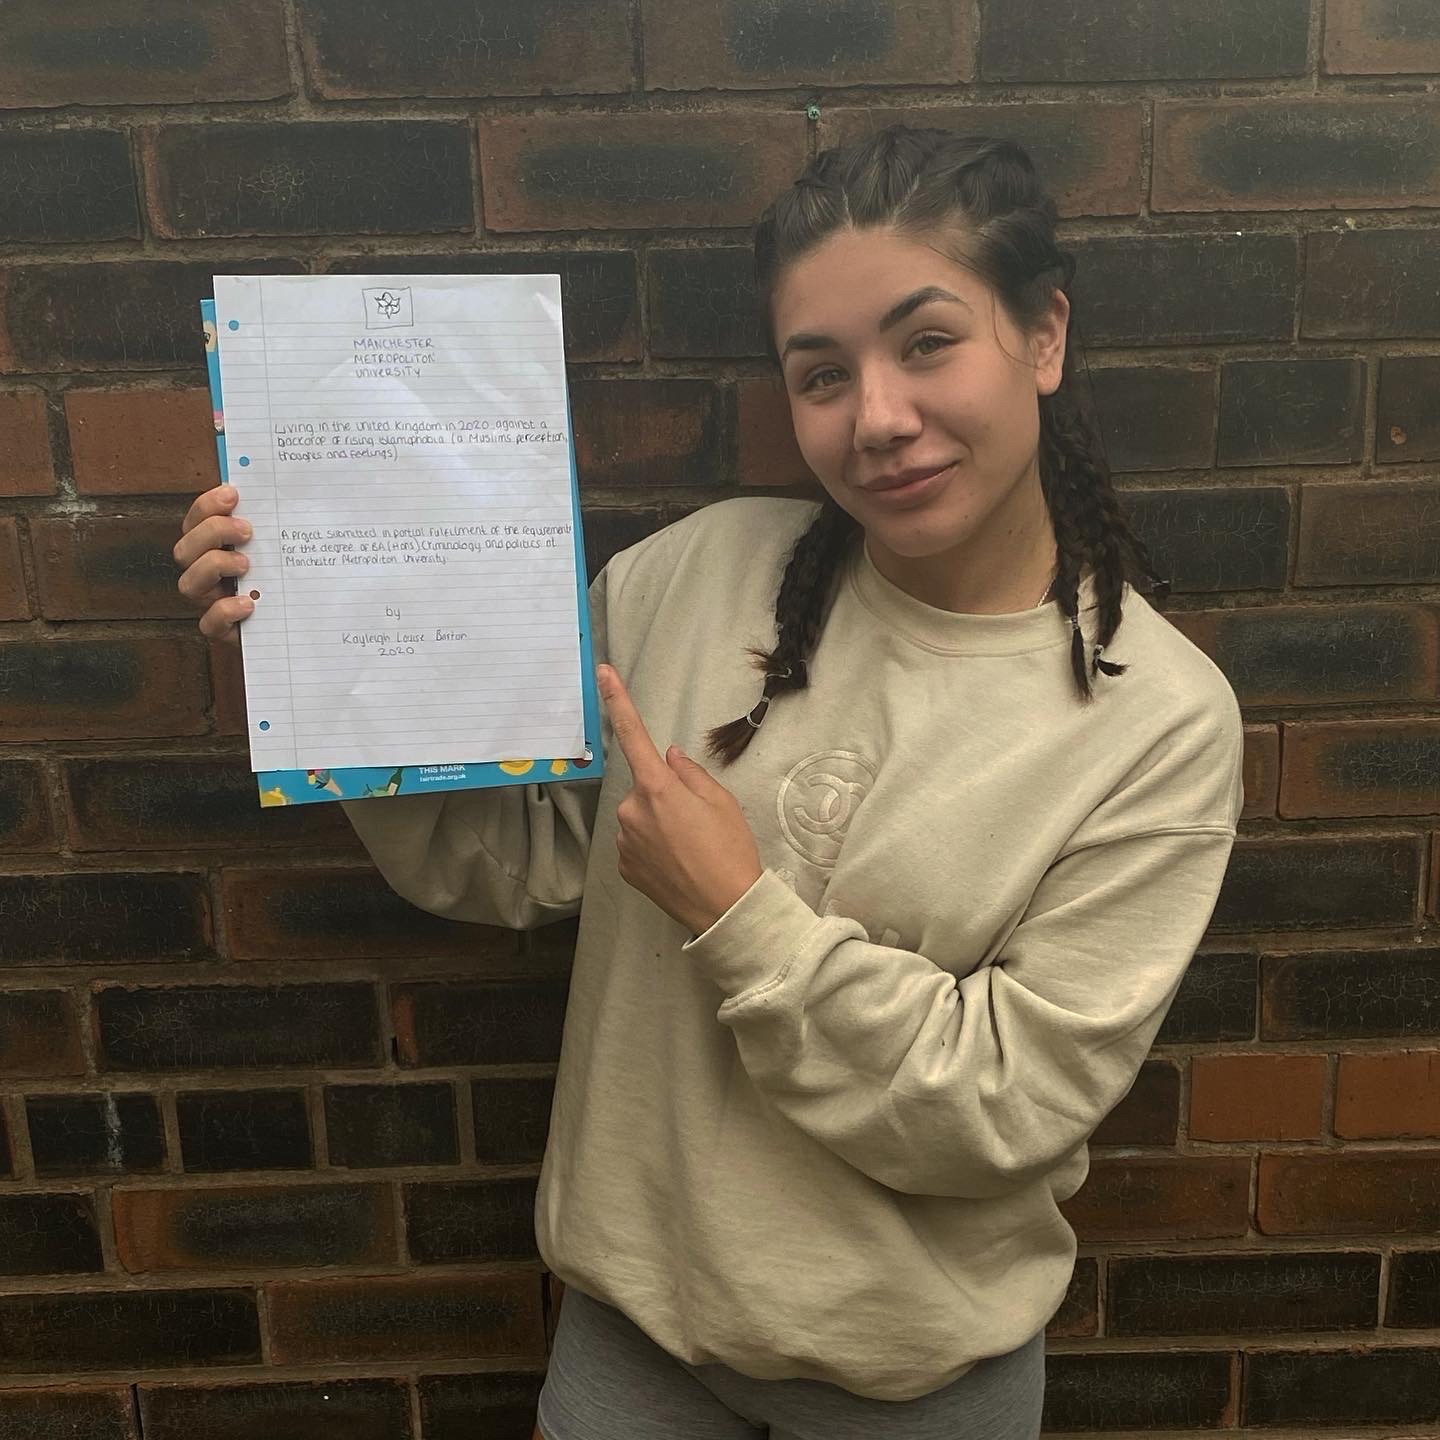 MANCHESTER
METROPOLITON
UNIVERSITY
Living in the United Kingdom in 2020 against a
baccdrop of rising islamaphobia (a Muslims perception,
thoughts and feelings)
A project submitted in partial fulfilment of the requirements
for the degree of BA (Hons) Criminology and politics at
Manchester Metropoliton University
by
Kayleigh Louise Barton
2020
THIS MARK
fairtrade.org.uk